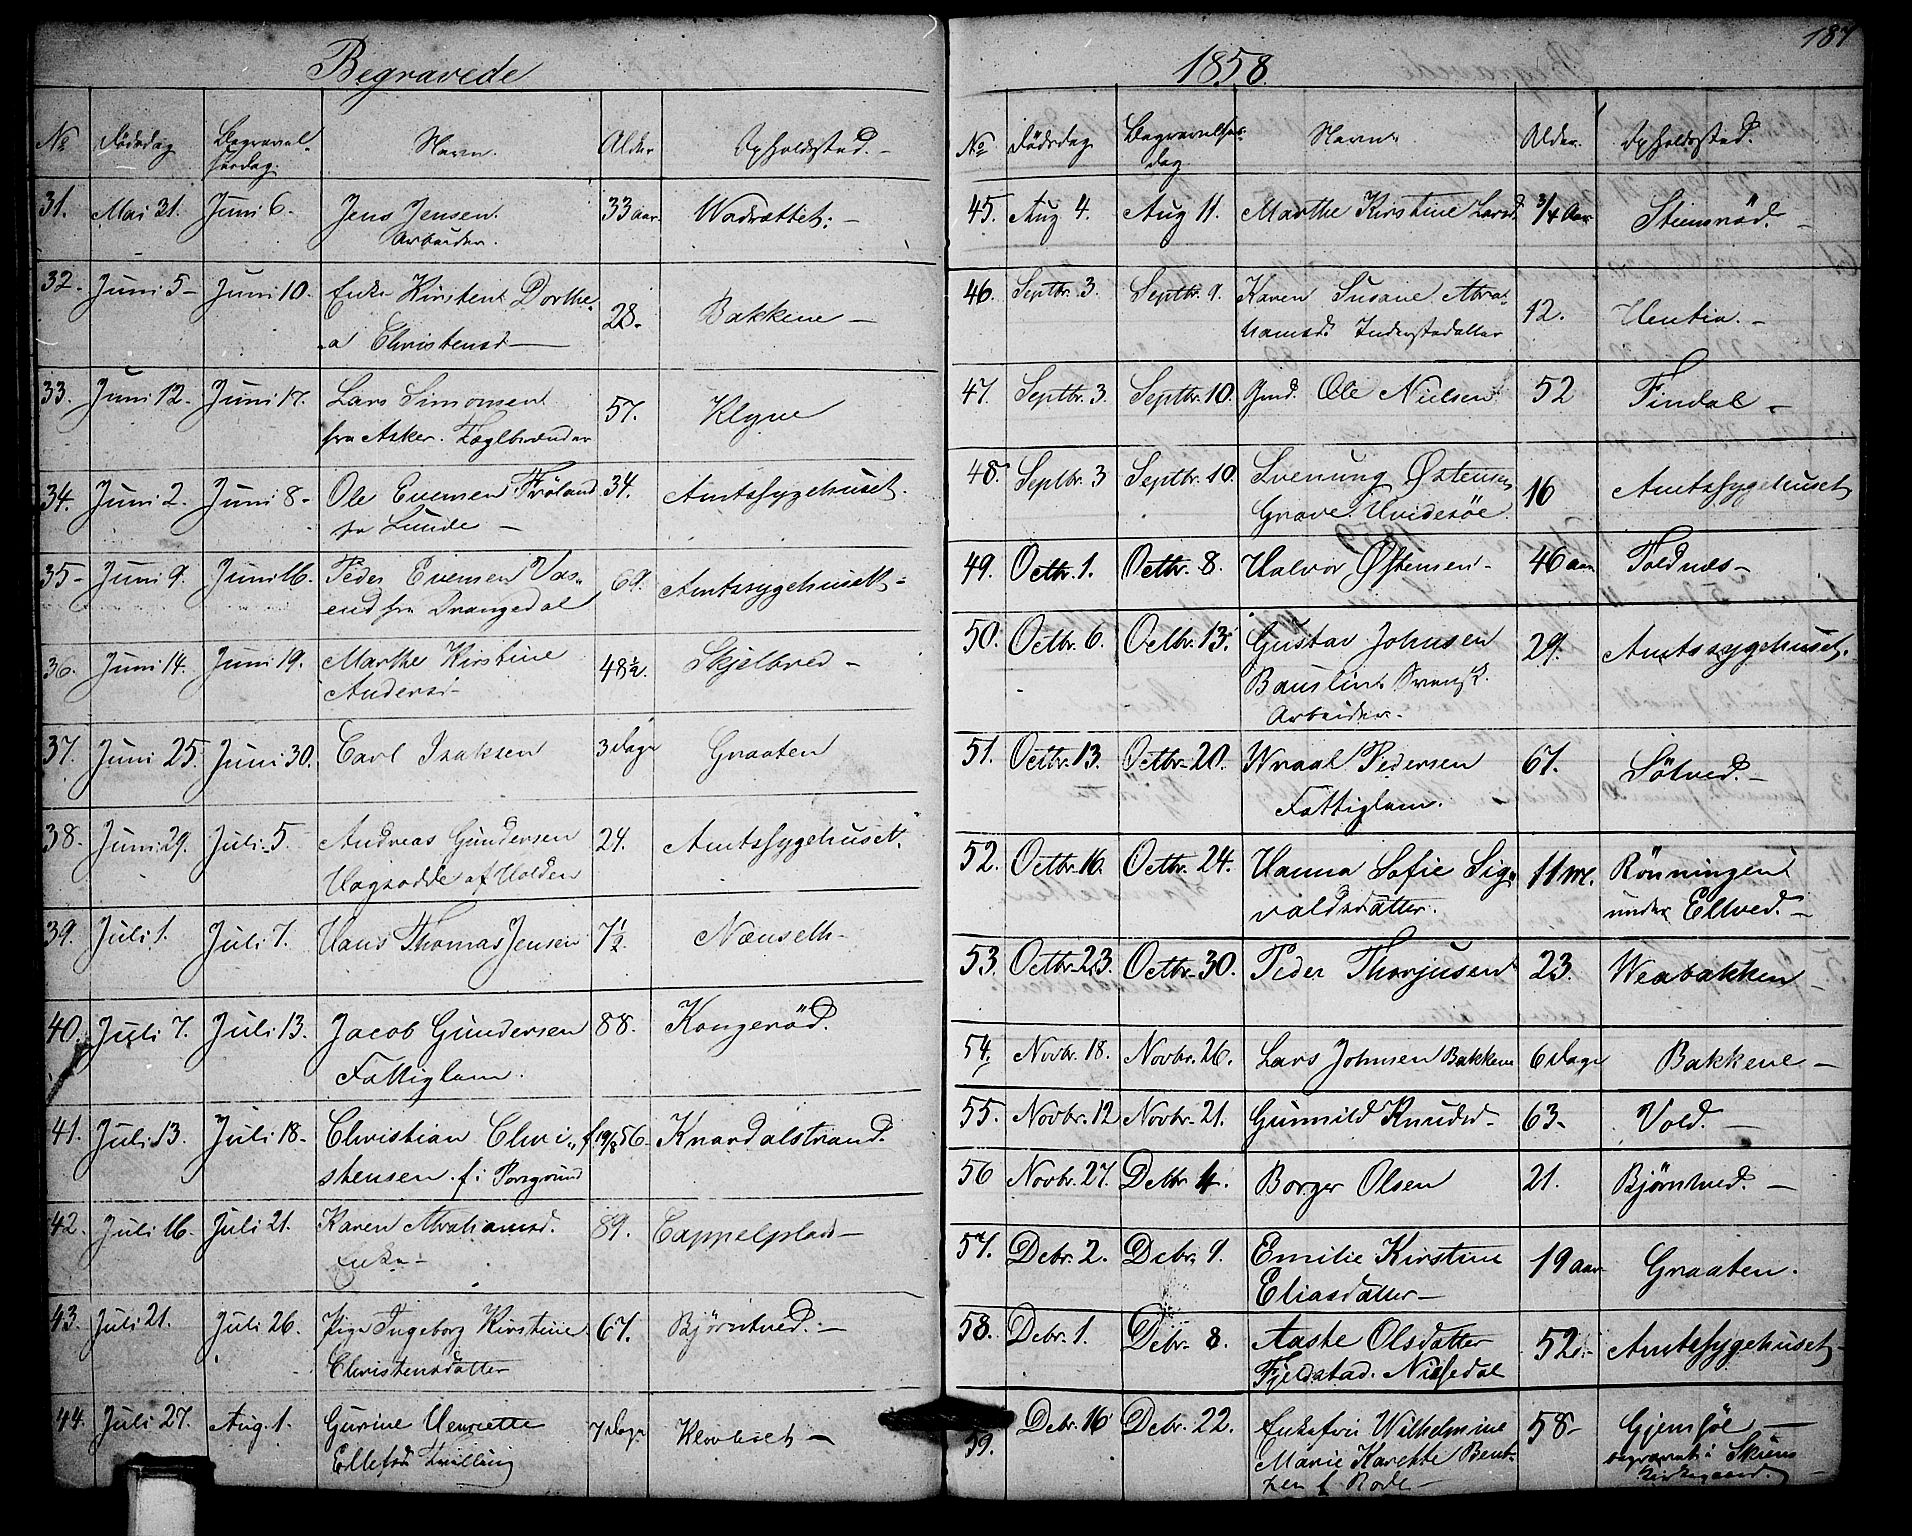 Begravede
No Dødsdag Begravel-
sesdag. Navn. Alder Opholdssted.
31. Mai 31. Juni 6. Jens Jensen. 33 aar. Wadrættet.
Arbeider.
32. Juni 5 Juni 10. Enke Kirstene Dorthe- 28. Bakkene
a Christensd
33. Juni 12. Juni 17. Lars Simonsen 57. Klyve
fra Asker. Teglbrænder
34. Juni 2. Juni 8 Ole Evensen Frøland 34. Amtssygehuset.
fra Lunde
35 Juni 9. Juni 16. Peder Evensen Vas- 69. Amtssygehusett
end fra Drangedal
36. Juni 14. Juni 19. Marthe Kirstine 48½. Skjelbred
Andersd
37. Juni 25. Juni 30. Carl Isaksen 3 Dage Graaten
38. Juni 29. Juli 5. Andreas Gundersen 24. Amtssygehuset.
Hogsodde af Holden
39. Juli 1. Juli 7. Hans Thomas Jensen 7½. Nænseth
40. Juli 7. Juli 13. Jacob Gundersen 88. Kongerød.
Fattiglem.
41. Juli 13. Juli 18. Christian Chri- f 19/8 56 Knardalstrand.
stensen f. i Porsgrund
42. Juli 16. Juli 21. Karen Abrahamsd. 89. Cappelplads
Enke
43. Juli 21. Juli 26. Pige Ingeborg Kirstine 67. Bjørntved.
Christensdatter
44. Juli 27. Aug. 1. Gurine Henriette 7 Dage Klovholt
Ellefsd Tvilling
1858. 187
No Dødsdag Begravelses-
dag Navn. Alder. Opholdssted.
45. Aug 4. Aug 11. Marthe Kirstine Larsd. 3/4 Aar Steensrød.
46. Septbr. 3. Septbr. 9. Karen Susane Abra- 12. Uentia.
hamsd. Inderstedatter
47. Septbr. 3. Septbr. 10. Gmd. Ole Nielsen 52 Findal
48. Septbr. 3 Septbr. 10. Svenung Østensen 16 Amtssygehuset
Grave Hvidesøe.
49. Octbr. 1. Octbr. 8. Halvor Østensen 46 aar Foldnes
50. Octbr. 6. Octbr. 13. Gustav Johnsen 29. Amtssygehuset.
Bauslin Svensk.
Arbeider
51. Octbr. 13. Octbr. 20. Wraal Pedersen 67. Søtved.
Fattiglem.
52. Octbr. 16. Octbr. 24. Hanna Sofie Sig- 11 M. Rönningen
valdsdatter. under Eltved.
53. Octbr. 23. Octbr. 30. Peder Thorjusen 23. Weabakken
54. Novbr. 18. Novbr. 26. Lars Johnsen Bakkene 6 Dage Bakkene
55. Novbr. 12 Novbr. 21. Gunnild Knudsd 63. Vold.
56 Novbr. 27. Debr. 4. Borger Olsen 21. Bjørntved.
57. Debr. 2. Debr. 9. Emilie Kirstine 19 aar Graaten.
Eliasdatter
58. Debr. 1. Debr. 8. Aaste Olsdatter 52. Amtssygehuset
Fjeldstad. Nissedal
59. Debr. 16 Debr. 22. Enkefru Wilhelmine 58 Gjemsøe
Marie Karethe Bent- begravet i Skiens
zen f. Rode Kirkegaard.